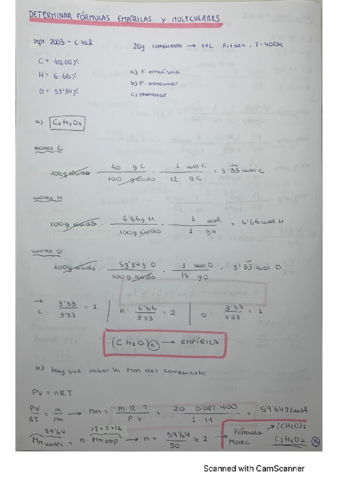 DETERMINAR FÓRMULAS EMPÍRICAS Y MOLECULARES
sept 2003 - C. Val
20g compuesto → 11L P=1atm, T=400K
C = 40,00%
H = 6'66%
O = 53'34%
a) F. empírica
b) F. molecular
c)
a) CxHyOz
MOLES C
100g · 40 g C / 100 g · 1 mol C / 12 g C = 3'33 mol C
MOLES H
100g · 6'66g H / 100g · 1 mol / 1 g H = 6'66 mol H
MOLES O
100g · 53'34g O / 100g · 1 mol O / 16 g O = 3'33 mol O
→ C 3'33 / 3'33 = 1 | H: 6'66 / 3'33 = 2 | O 3'33 / 3'33 = 1
(CH2O)n → EMPÍRICA
b) Hay que saber la Mm del compuesto
PV = nRT
PV / RT = m / Mm → Mm = m·R·T / P·V = 20 · 0'082 · 400 / 1 · 11 = 59'64 g/mol
59'64 12+2+16
Mm = n · Mm emp → n = 59'64 / 30 ≈ 2 → Fórmula Molec → (CH2O)2
C2H4O2
Scanned with CamScanner